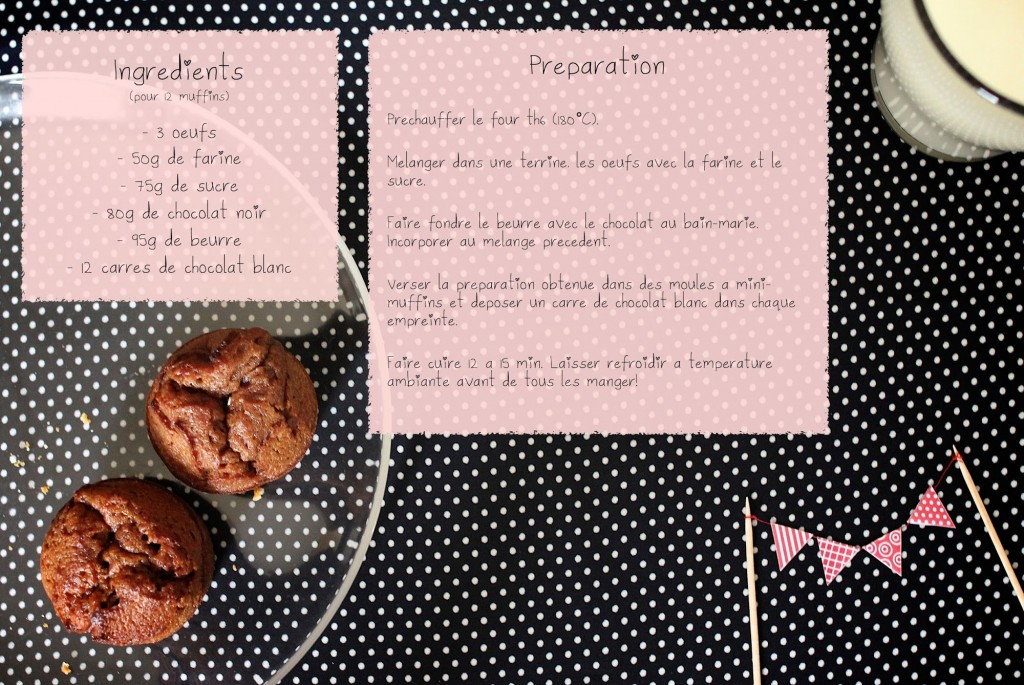 Ingredients
(pour 12 muffins)
- 3 oeufs
- 50g de farine
- 75g de sucre
- 80g de chocolat noir
- 95g de beurre
- 12 carres de chocolat blanc
Preparation
Prechauffer le four th6 (180°C).
Melanger dans une terrine. les oeufs avec la farine et le
sucre.
Faire fondre le beurre avec le chocolat au bain-marie.
Incorporer au melange precedent.
Verser la preparation obtenue dans des moules a mini-
muffins et deposer un carre de chocolat blanc dans chaque
empreinte.
Faire cuire 12 a 15 min. Laisser refroidir a temperature
ambiante avant de tous les manger!